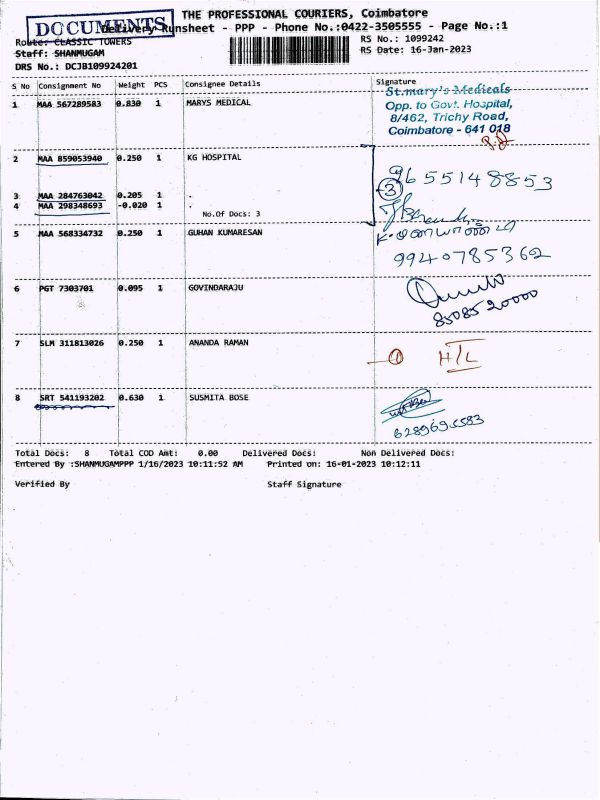 THE PROFESSIONAL COURIERS, Coimbatore
DOCUMENTS
Delivery Runsheet - PPP - Phone No.:0422-3505555 - Page No.:1
Route: CLASSIC TOWERS
RS No.: 1099242
Staff: SHANMUGAM
RS Date: 16-Jan-2023
DRS No.: DCJB109924201
S No Consignment No Weight PCS Consignee Details Signature
1 MAA 567289583 0.830 1 MARYS MEDICAL
St.mary's Medicals
Opp. to Govt. Hospital,
8/462, Trichy Road,
Coimbatore - 641 018
2 MAA 859053940 0.250 1 KG HOSPITAL
9655148853
3 MAA 284763042 0.205 1 .
3
4 MAA 298348693 -0.020 1 .
No.Of Docs: 3
5 MAA 568334732 0.250 1 GUHAN KUMARESAN
9940785362
6 PGT 7303701 0.095 1 GOVINDARAJU
8508520000
7 SLM 311813026 0.250 1 ANANDA RAMAN
1 H/L
8 SRT 541193202 0.630 1 SUSMITA BOSE
6289695583
Total Docs: 8 Total COD Amt: 0.00 Delivered Docs: Non Delivered Docs:
Entered By :SHANMUGAMPPP 1/16/2023 10:11:52 AM Printed on: 16-01-2023 10:12:11
Verified By Staff Signature